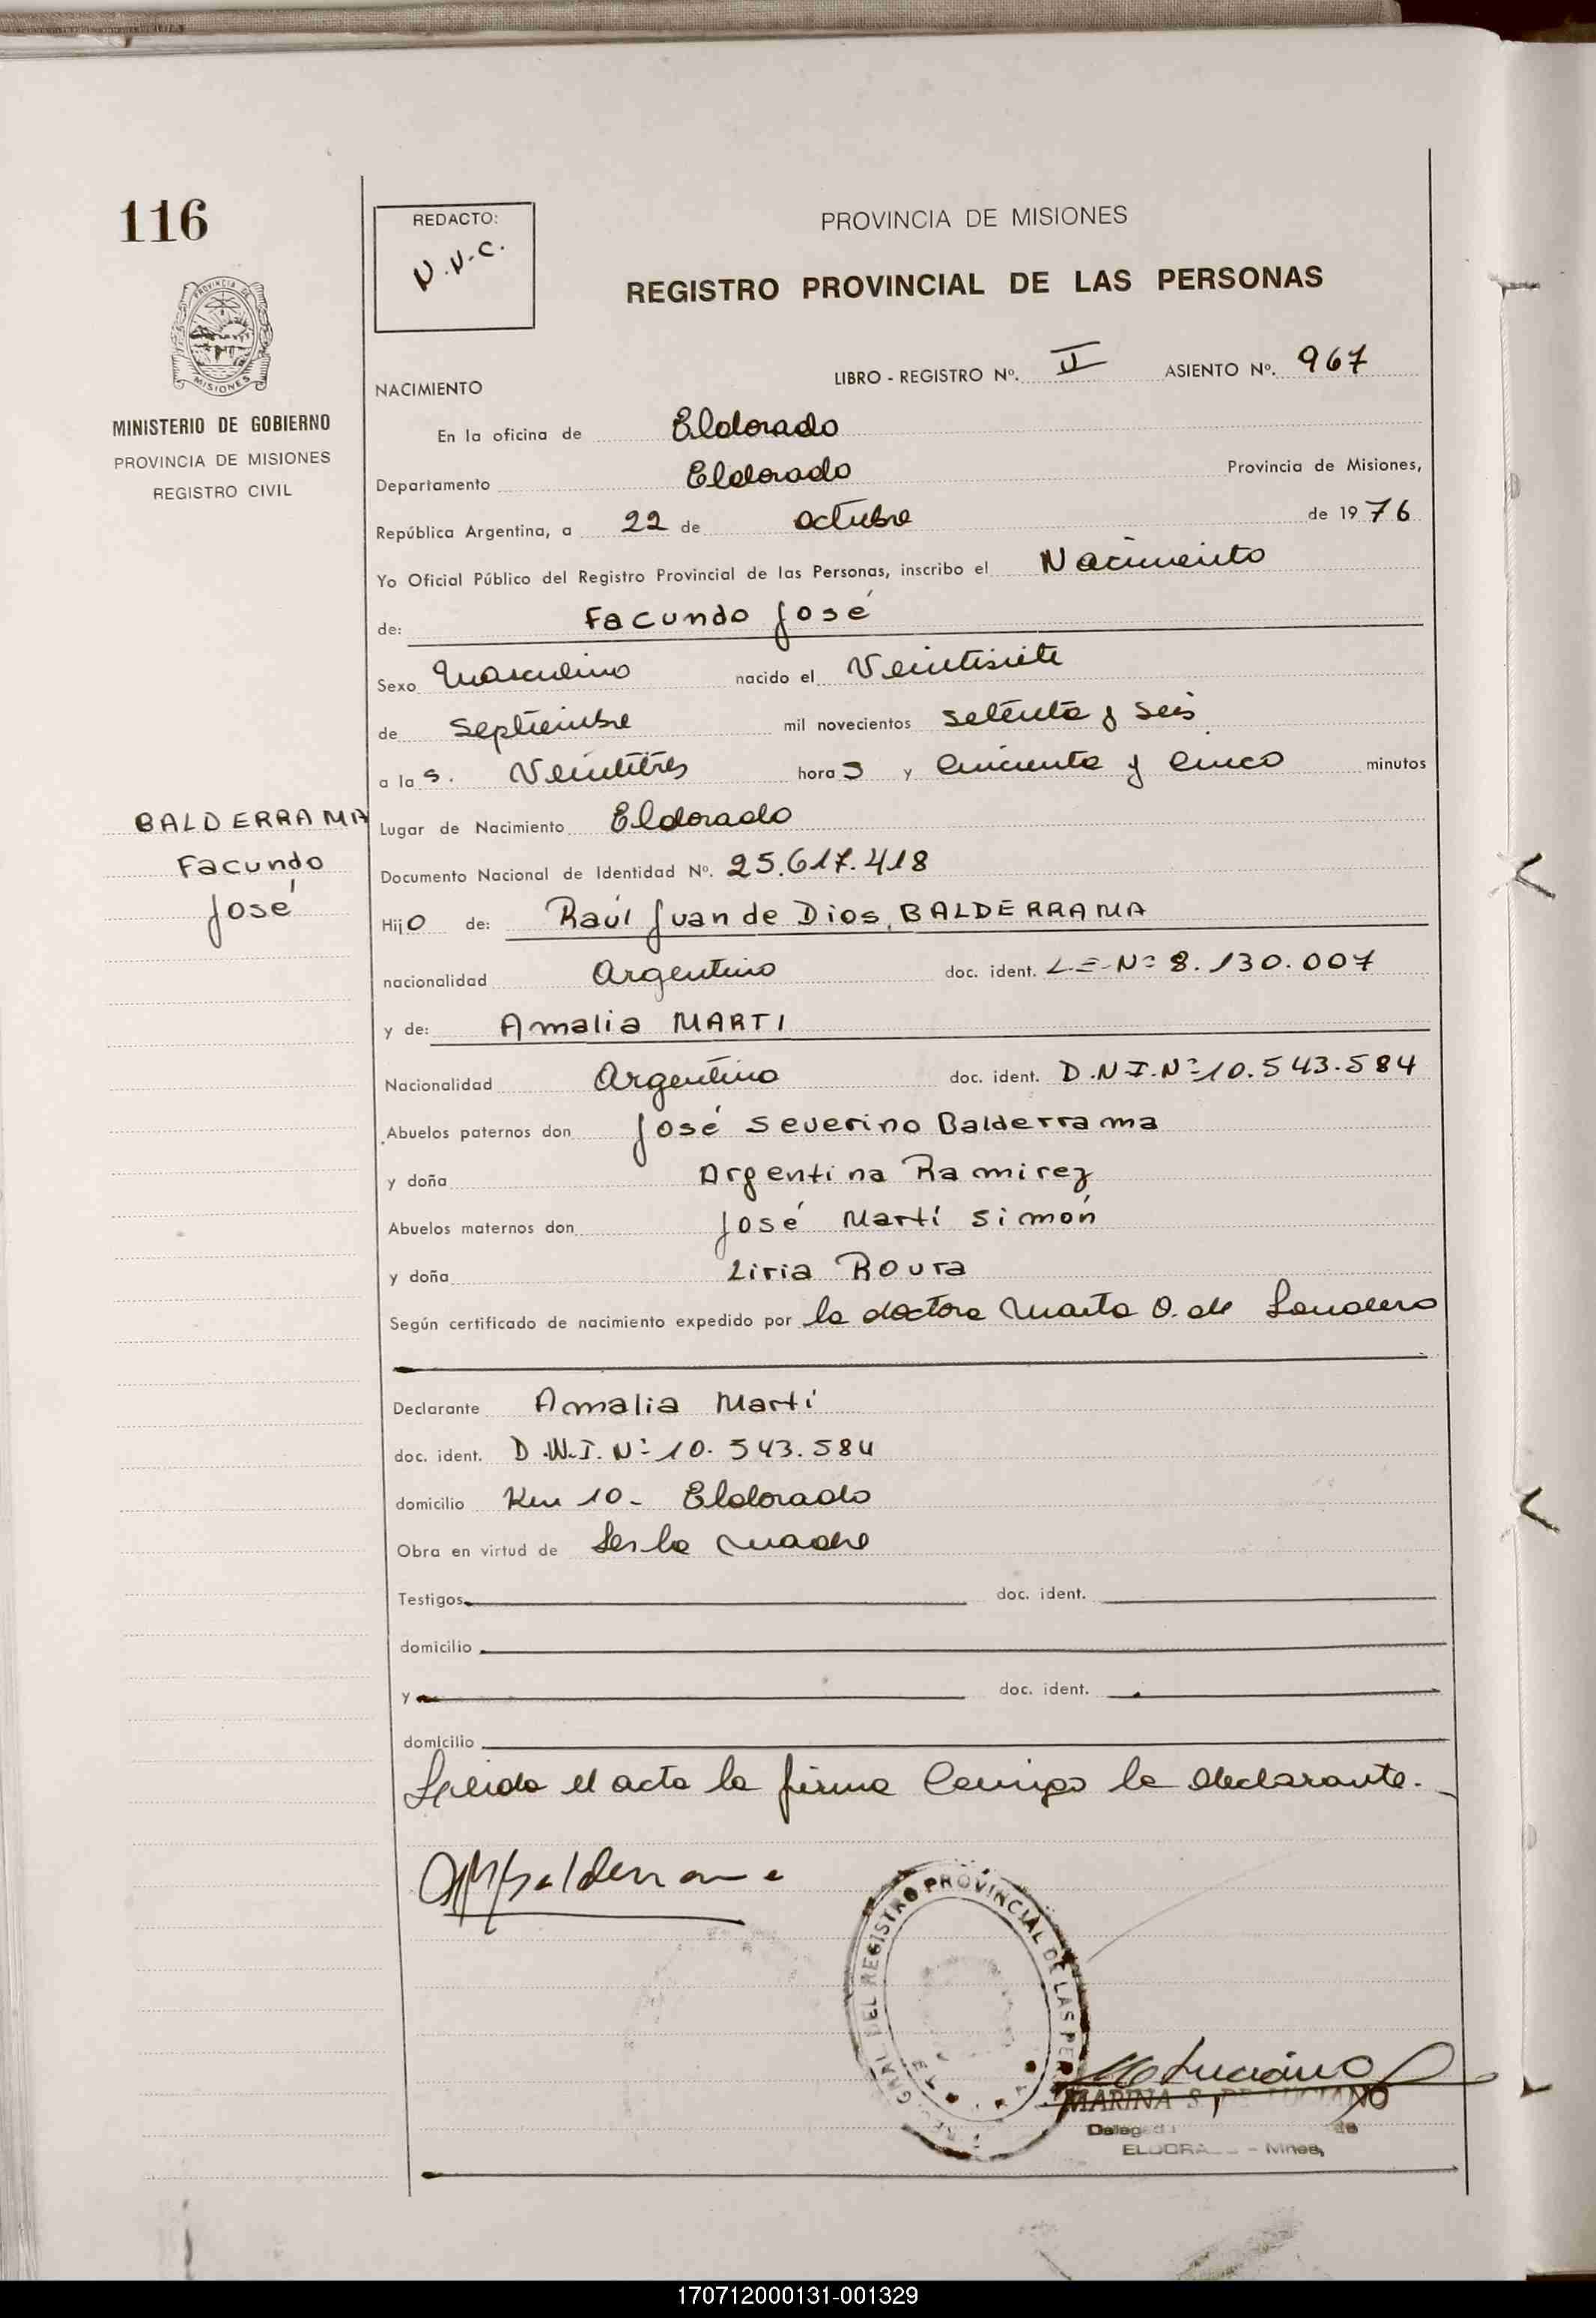 116
REDACTO:
N.N.C.
PROVINCIA DE MISIONES
REGISTRO PROVINCIAL DE LAS PERSONAS
PROVINCIA DE
MISIONES
MINISTERIO DE GOBIERNO
PROVINCIA DE MISIONES
REGISTRO CIVIL
NACIMIENTO
LIBRO - REGISTRO Nº. II ASIENTO Nº. 967
En la oficina de Eldorado
Departamento Eldorado Provincia de Misiones,
República Argentina, a 22 de octubre de 1976
Yo Oficial Público del Registro Provincial de las Personas, inscribo el Nacimiento
de: Facundo José
Sexo Masculino nacido el Veintisiete
de Septiembre mil novecientos setenta y seis
a las. Veintitres horas y cincuenta y cinco minutos
BALDERRAMA
Facundo
José
Lugar de Nacimiento Eldorado
Documento Nacional de Identidad Nº. 25.617.418
Hijo de: Raúl Juan de Dios BALDERRAMA
nacionalidad Argentino doc. ident. L.E-Nº 8.130.007
y de: Amalia MARTI
Nacionalidad Argentina doc. ident. D.N.I.Nº 10.543.584
Abuelos paternos don José Severino Balderrama
y doña Argentina Ramirez
Abuelos maternos don José Martí Simón
y doña Liria Roura
Según certificado de nacimiento expedido por la doctora Marta O. de
Declarante Amalia Martí
doc. ident. D.N.I. Nº 10.543.584
domicilio Km 10- Eldorado
Obra en virtud de ser la madre
Testigos doc. ident.
domicilio
y doc. ident.
domicilio
Leida el acta la firma conmigo la declarante.
Balderrama
GRAL DEL REGISTRO PROVINCIAL DE LAS PER
Luciano
MARINA S. DE LUCIANO
170712000131-001329